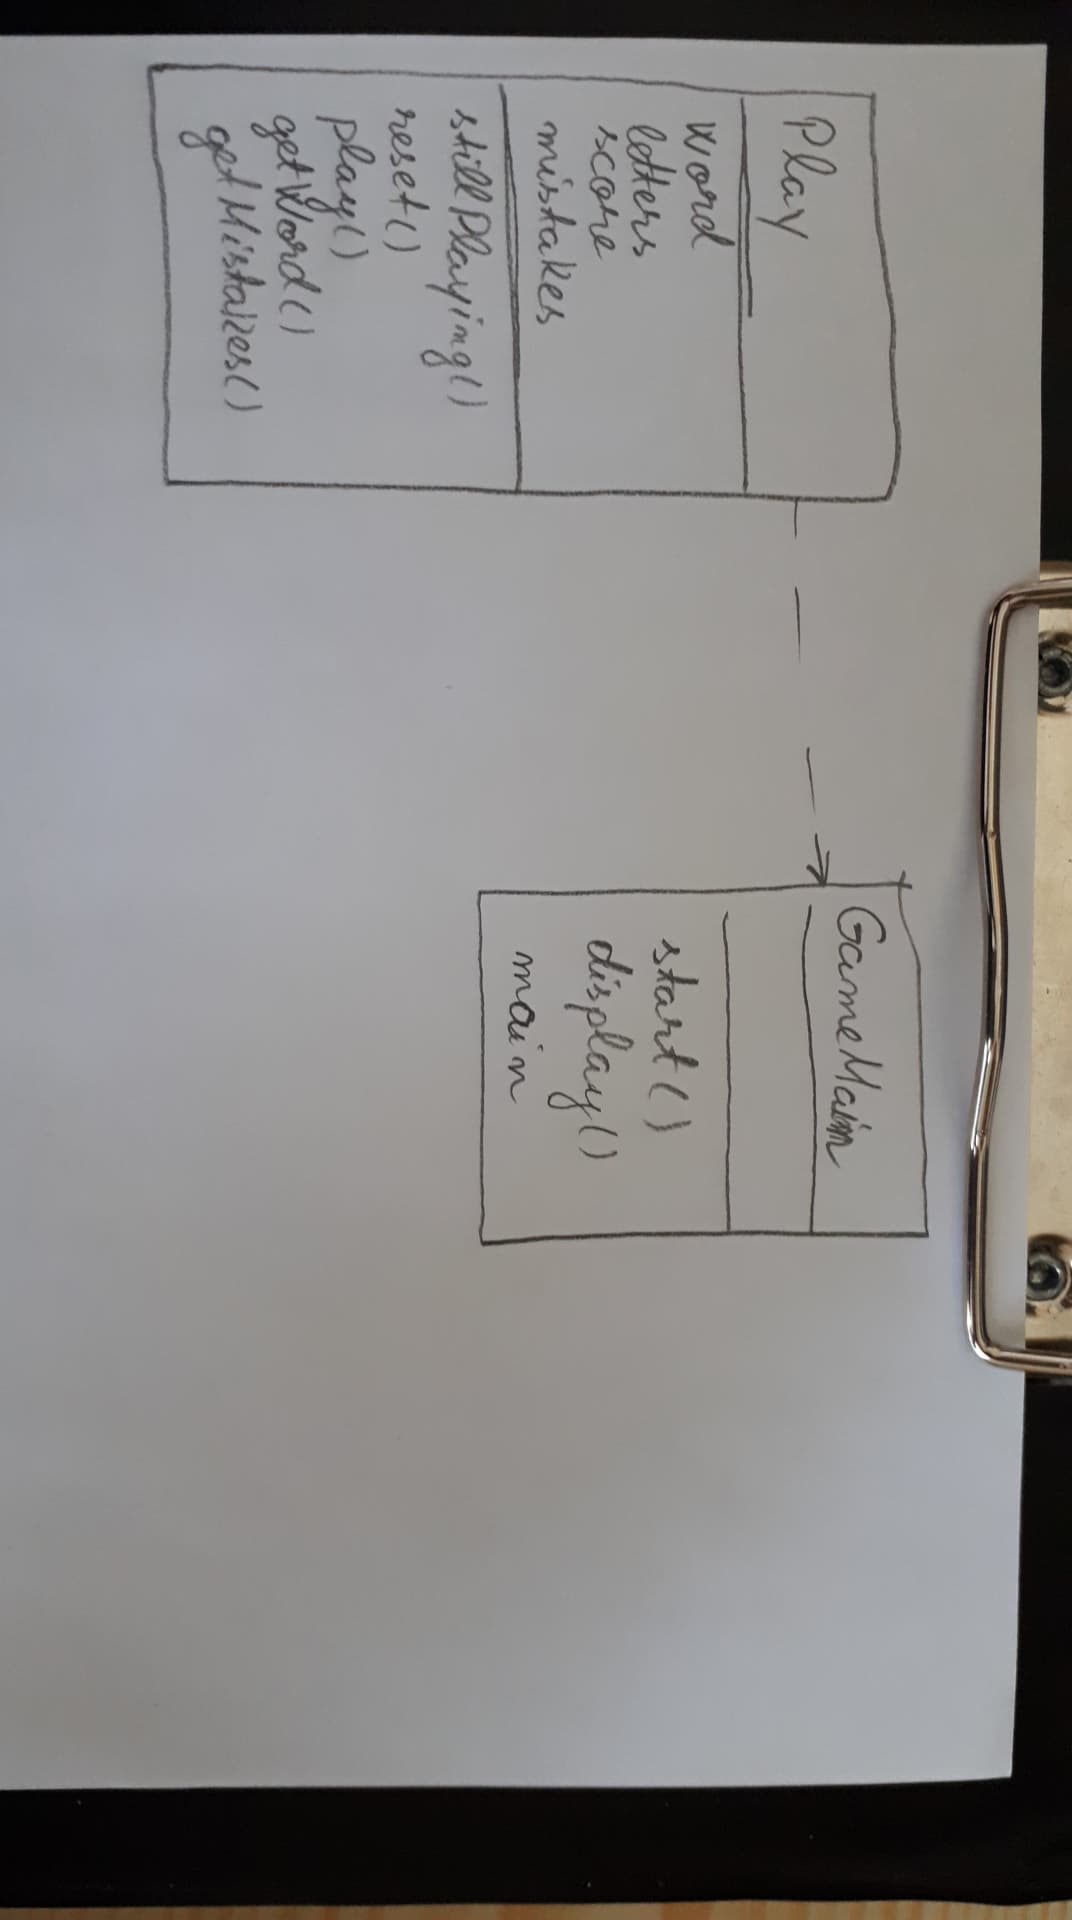 Play
word
letters
score
mistakes
stillPlaying()
reset()
play()
getWord()
getMistakes()
GameMain
start()
display()
main